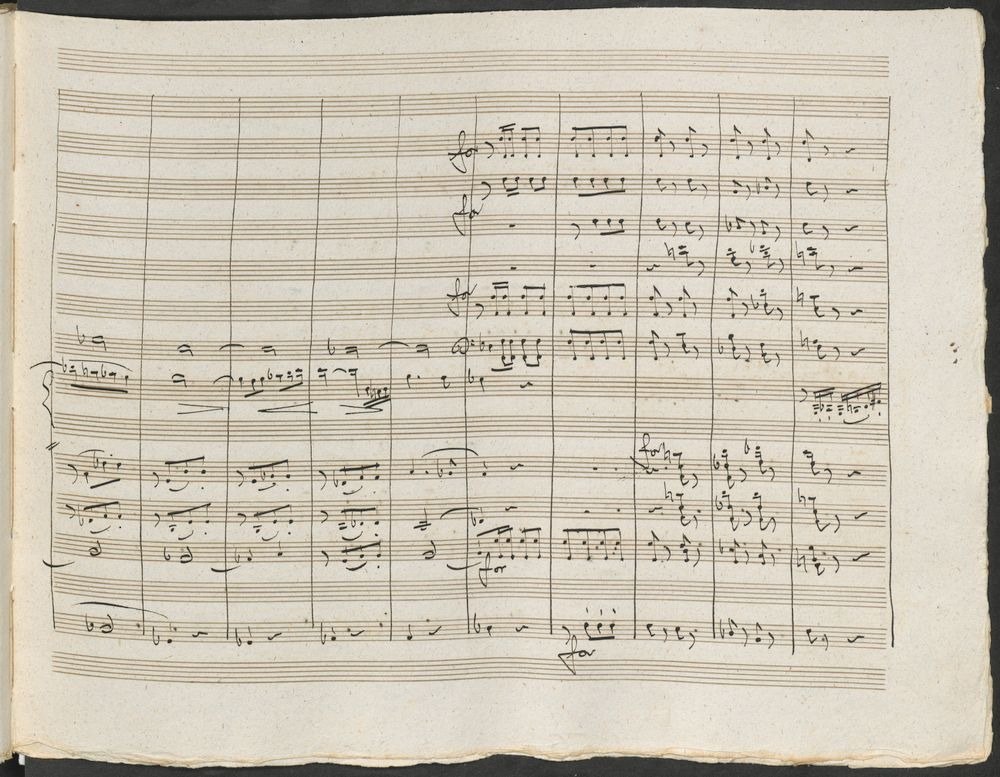 for
for
for
for
for
for